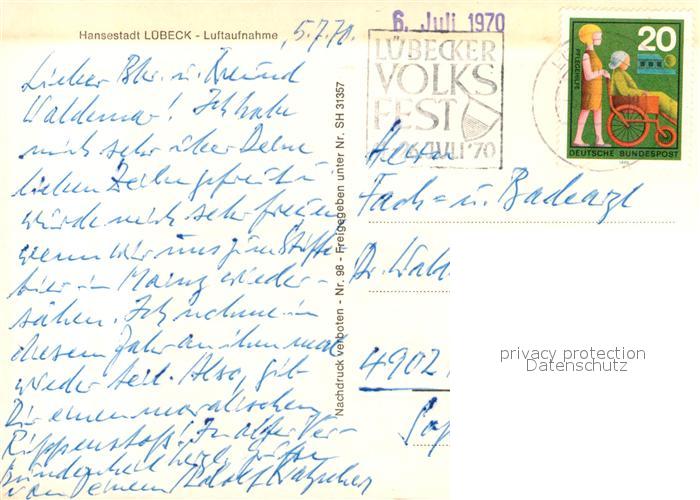 Hansestadt LÜBECK - Luftaufnahme
5.7.70.
Lieber Bbr. u. Freund
Waldemar! Ich habe
mich sehr über Deine
lieben Zeilen gefreut u.
würde mich sehr freuen
wenn wir uns zum Stiftungs
hier in Mainz wieder-
sähen. Ich nehme in
diesem Jahr an ihm mal
wieder teil. Also, gib
Dir einen moralischen
Rippenstoß! In alter Ver-
bundenheit herzl. Grüße
von Deinem Adolf
Nachdruck verboten - Nr. 98 - Freigegeben unter Nr. SH 31357
6. Juli 1970
LÜBECKER
VOLKS
FEST
JULI '70
20
PFLEGEHILFE
DEUTSCHE BUNDESPOST
Herrn
Fach= u. Badearzt
Dr. Wald
4902
privacy protection
Datenschutz